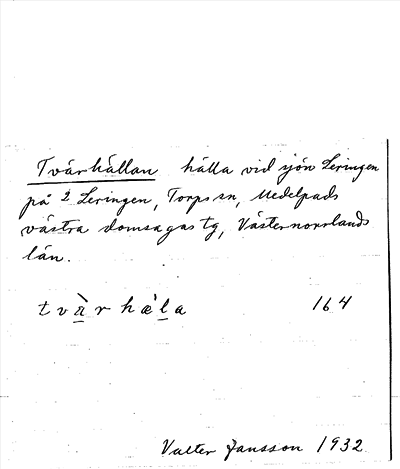 Tvärhällan hälla vid sjön Leringen
på 2 Leringen, Torps sn, Medelpads
västra domsagas tg, Västernorrlands
län.
tvä̀rhæ̀la 164
Valter Jansson 1932